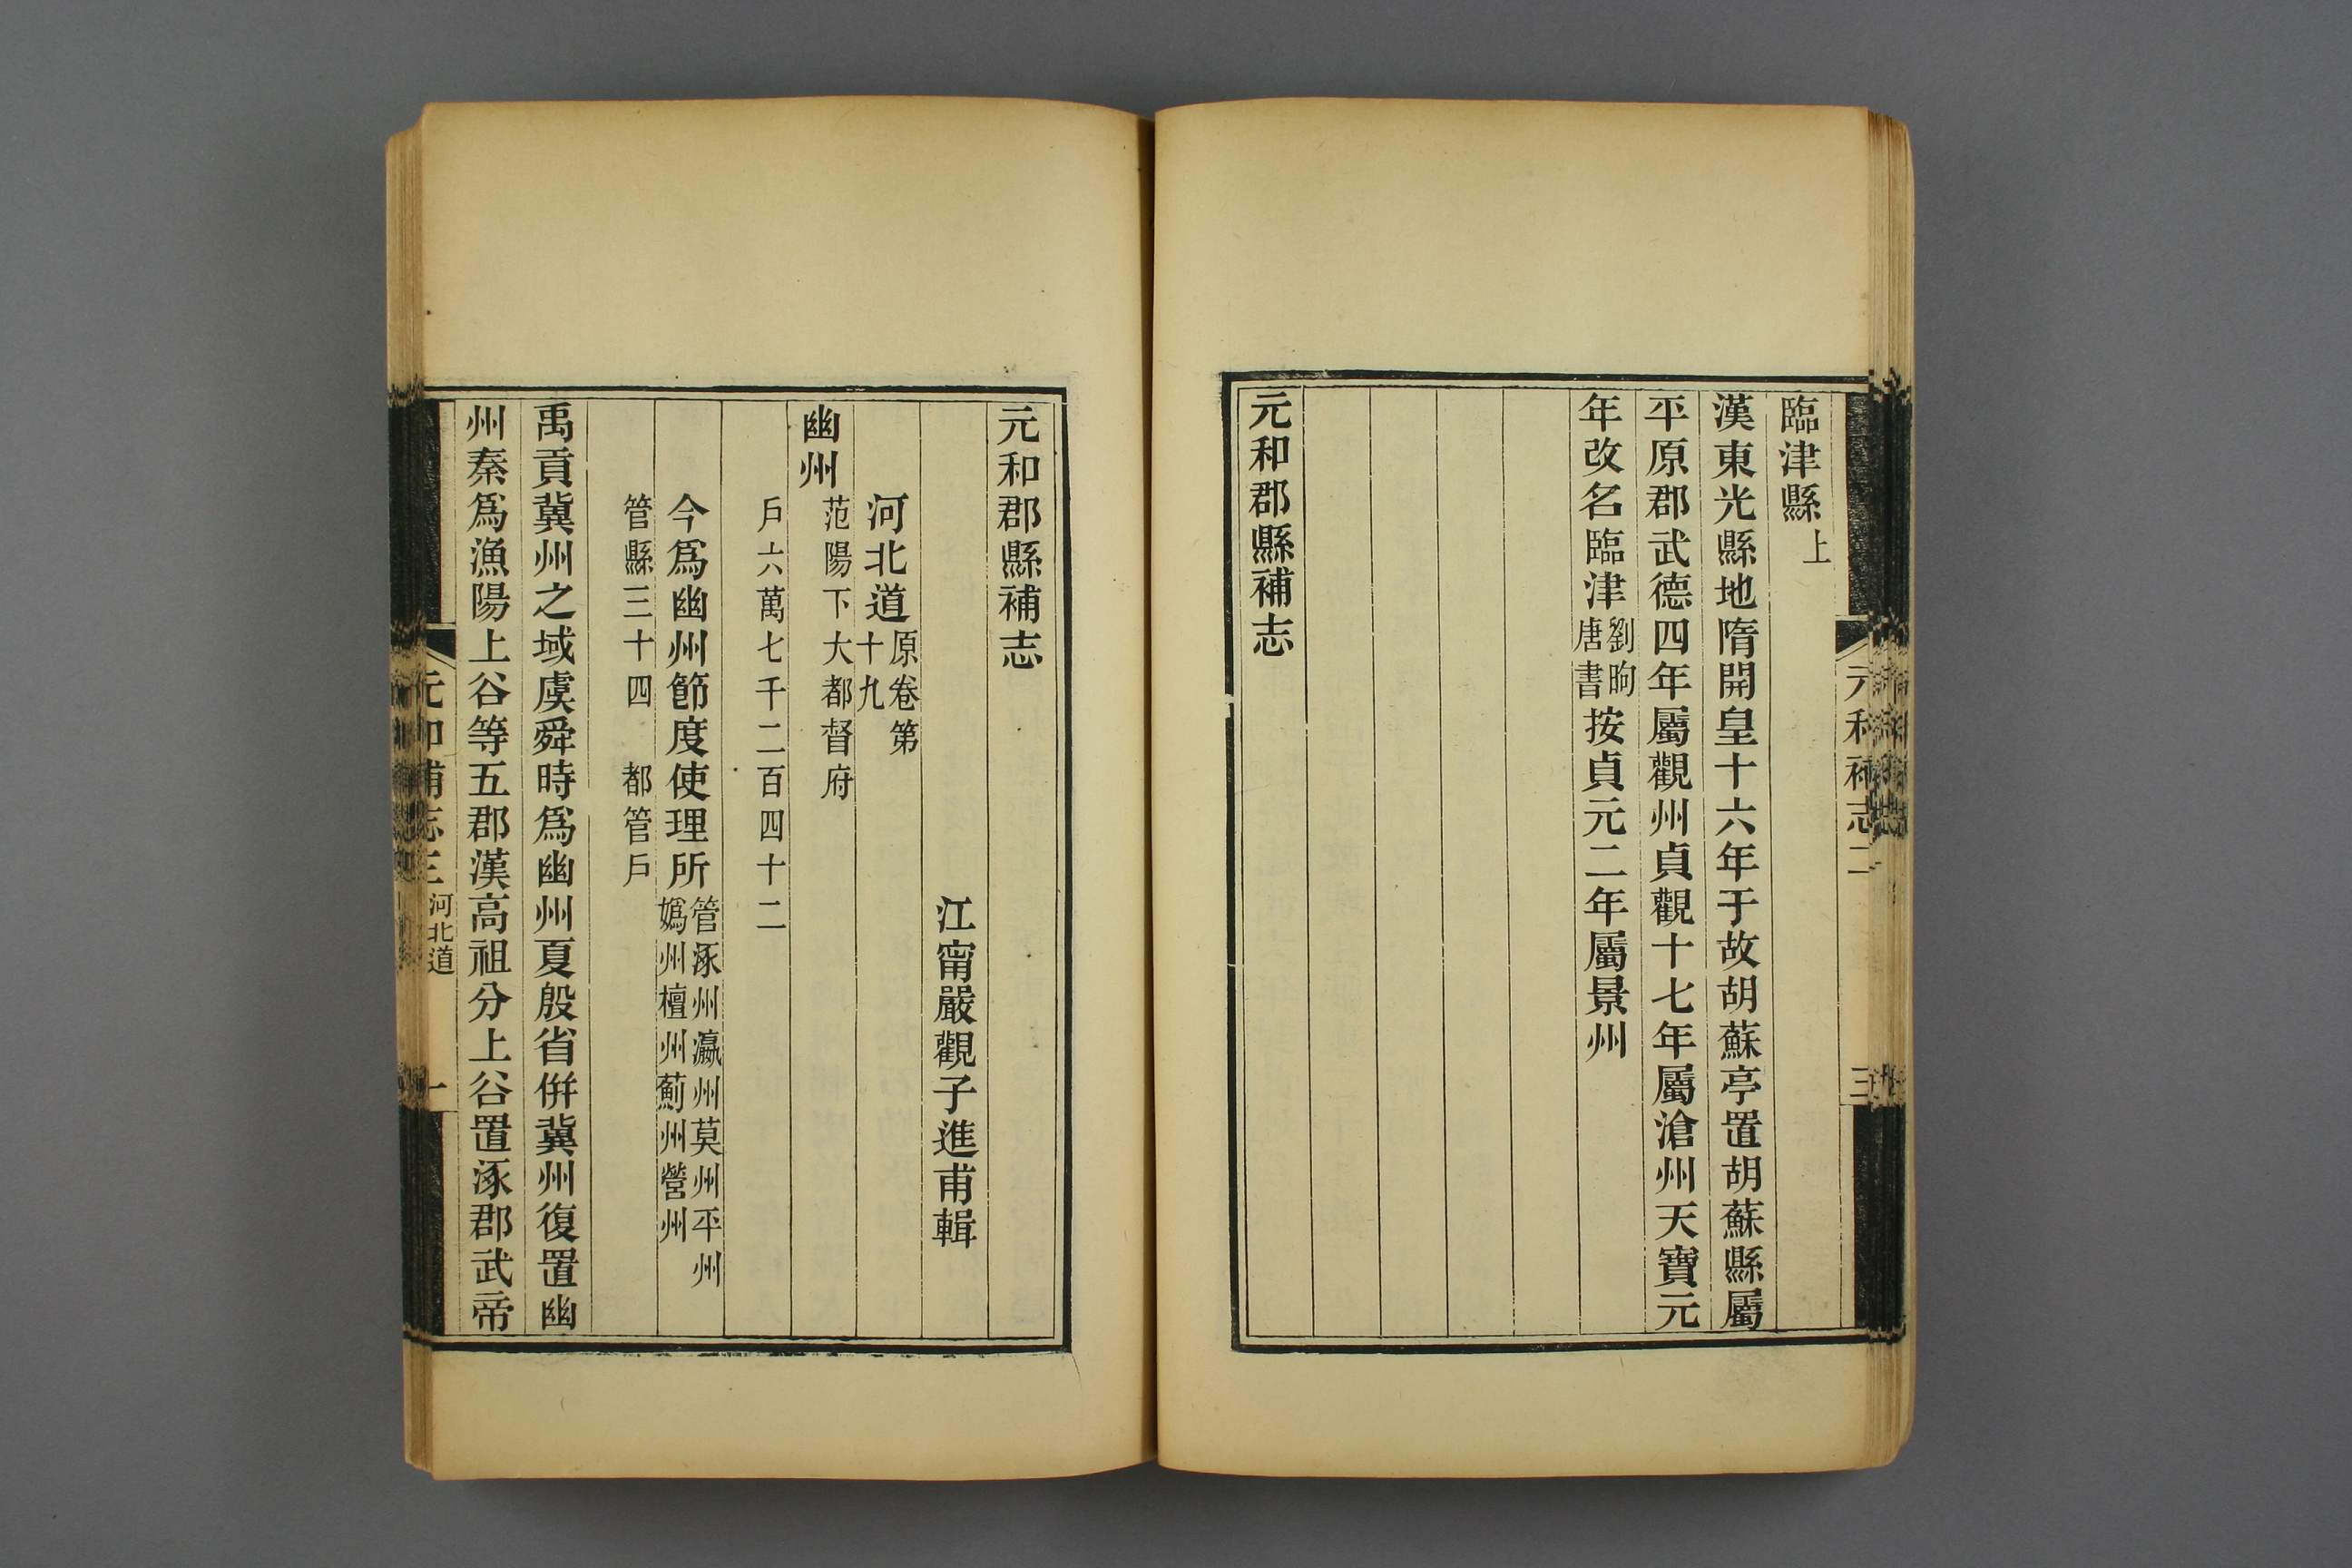 臨津縣上
漢東光縣地隋開皇十六年于故胡蘇亭置胡蘇縣屬
平原郡武德四年屬觀州貞觀十七年屬滄州天寶元
年改名臨津劉昫唐書按貞元二年屬景州
元和郡縣補志
元和補志二
三
元和郡縣補志
江甯嚴觀子進甫輯
河北道原卷第十九
幽州范陽下大都督府
戶六萬七千二百四十二
今爲幽州節度使理所管涿州瀛州莫州平州嬀州檀州薊州營州
管縣三十四　都管戶
禹貢冀州之域虞舜時爲幽州夏殷省併冀州復置幽
州秦爲漁陽上谷等五郡漢高祖分上谷置涿郡武帝
元和補志三河北道
一